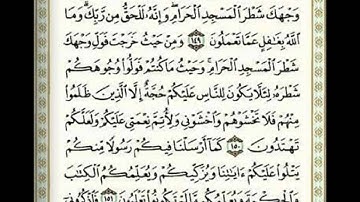 وَجْهَكَ شَطْرَ ٱلْمَسْجِدِ ٱلْحَرَامِ ۖ وَإِنَّهُۥ لَلْحَقُّ مِن رَّبِّكَ ۗ وَمَا
ٱللَّهُ بِغَٰفِلٍ عَمَّا تَعْمَلُونَ ١٤٩ وَمِنْ حَيْثُ خَرَجْتَ فَوَلِّ وَجْهَكَ
شَطْرَ ٱلْمَسْجِدِ ٱلْحَرَامِ ۚ وَحَيْثُ مَا كُنتُمْ فَوَلُّوا۟ وُجُوهَكُمْ
شَطْرَهُۥ لِئَلَّا يَكُونَ لِلنَّاسِ عَلَيْكُمْ حُجَّةٌ إِلَّا ٱلَّذِينَ ظَلَمُوا۟
مِنْهُمْ فَلَا تَخْشَوْهُمْ وَٱخْشَوْنِى وَلِأُتِمَّ نِعْمَتِى عَلَيْكُمْ وَلَعَلَّكُمْ
تَهْتَدُونَ ١٥٠ كَمَآ أَرْسَلْنَا فِيكُمْ رَسُولًا مِّنكُمْ
يَتْلُوا۟ عَلَيْكُمْ ءَايَٰتِنَا وَيُزَكِّيكُمْ وَيُعَلِّمُكُمُ ٱلْكِتَٰبَ
وَٱلْحِكْمَةَ وَيُعَلِّمُكُم مَّا لَمْ تَكُونُوا۟ تَعْلَمُونَ ١٥١ فَٱذْكُرُونِىٓ